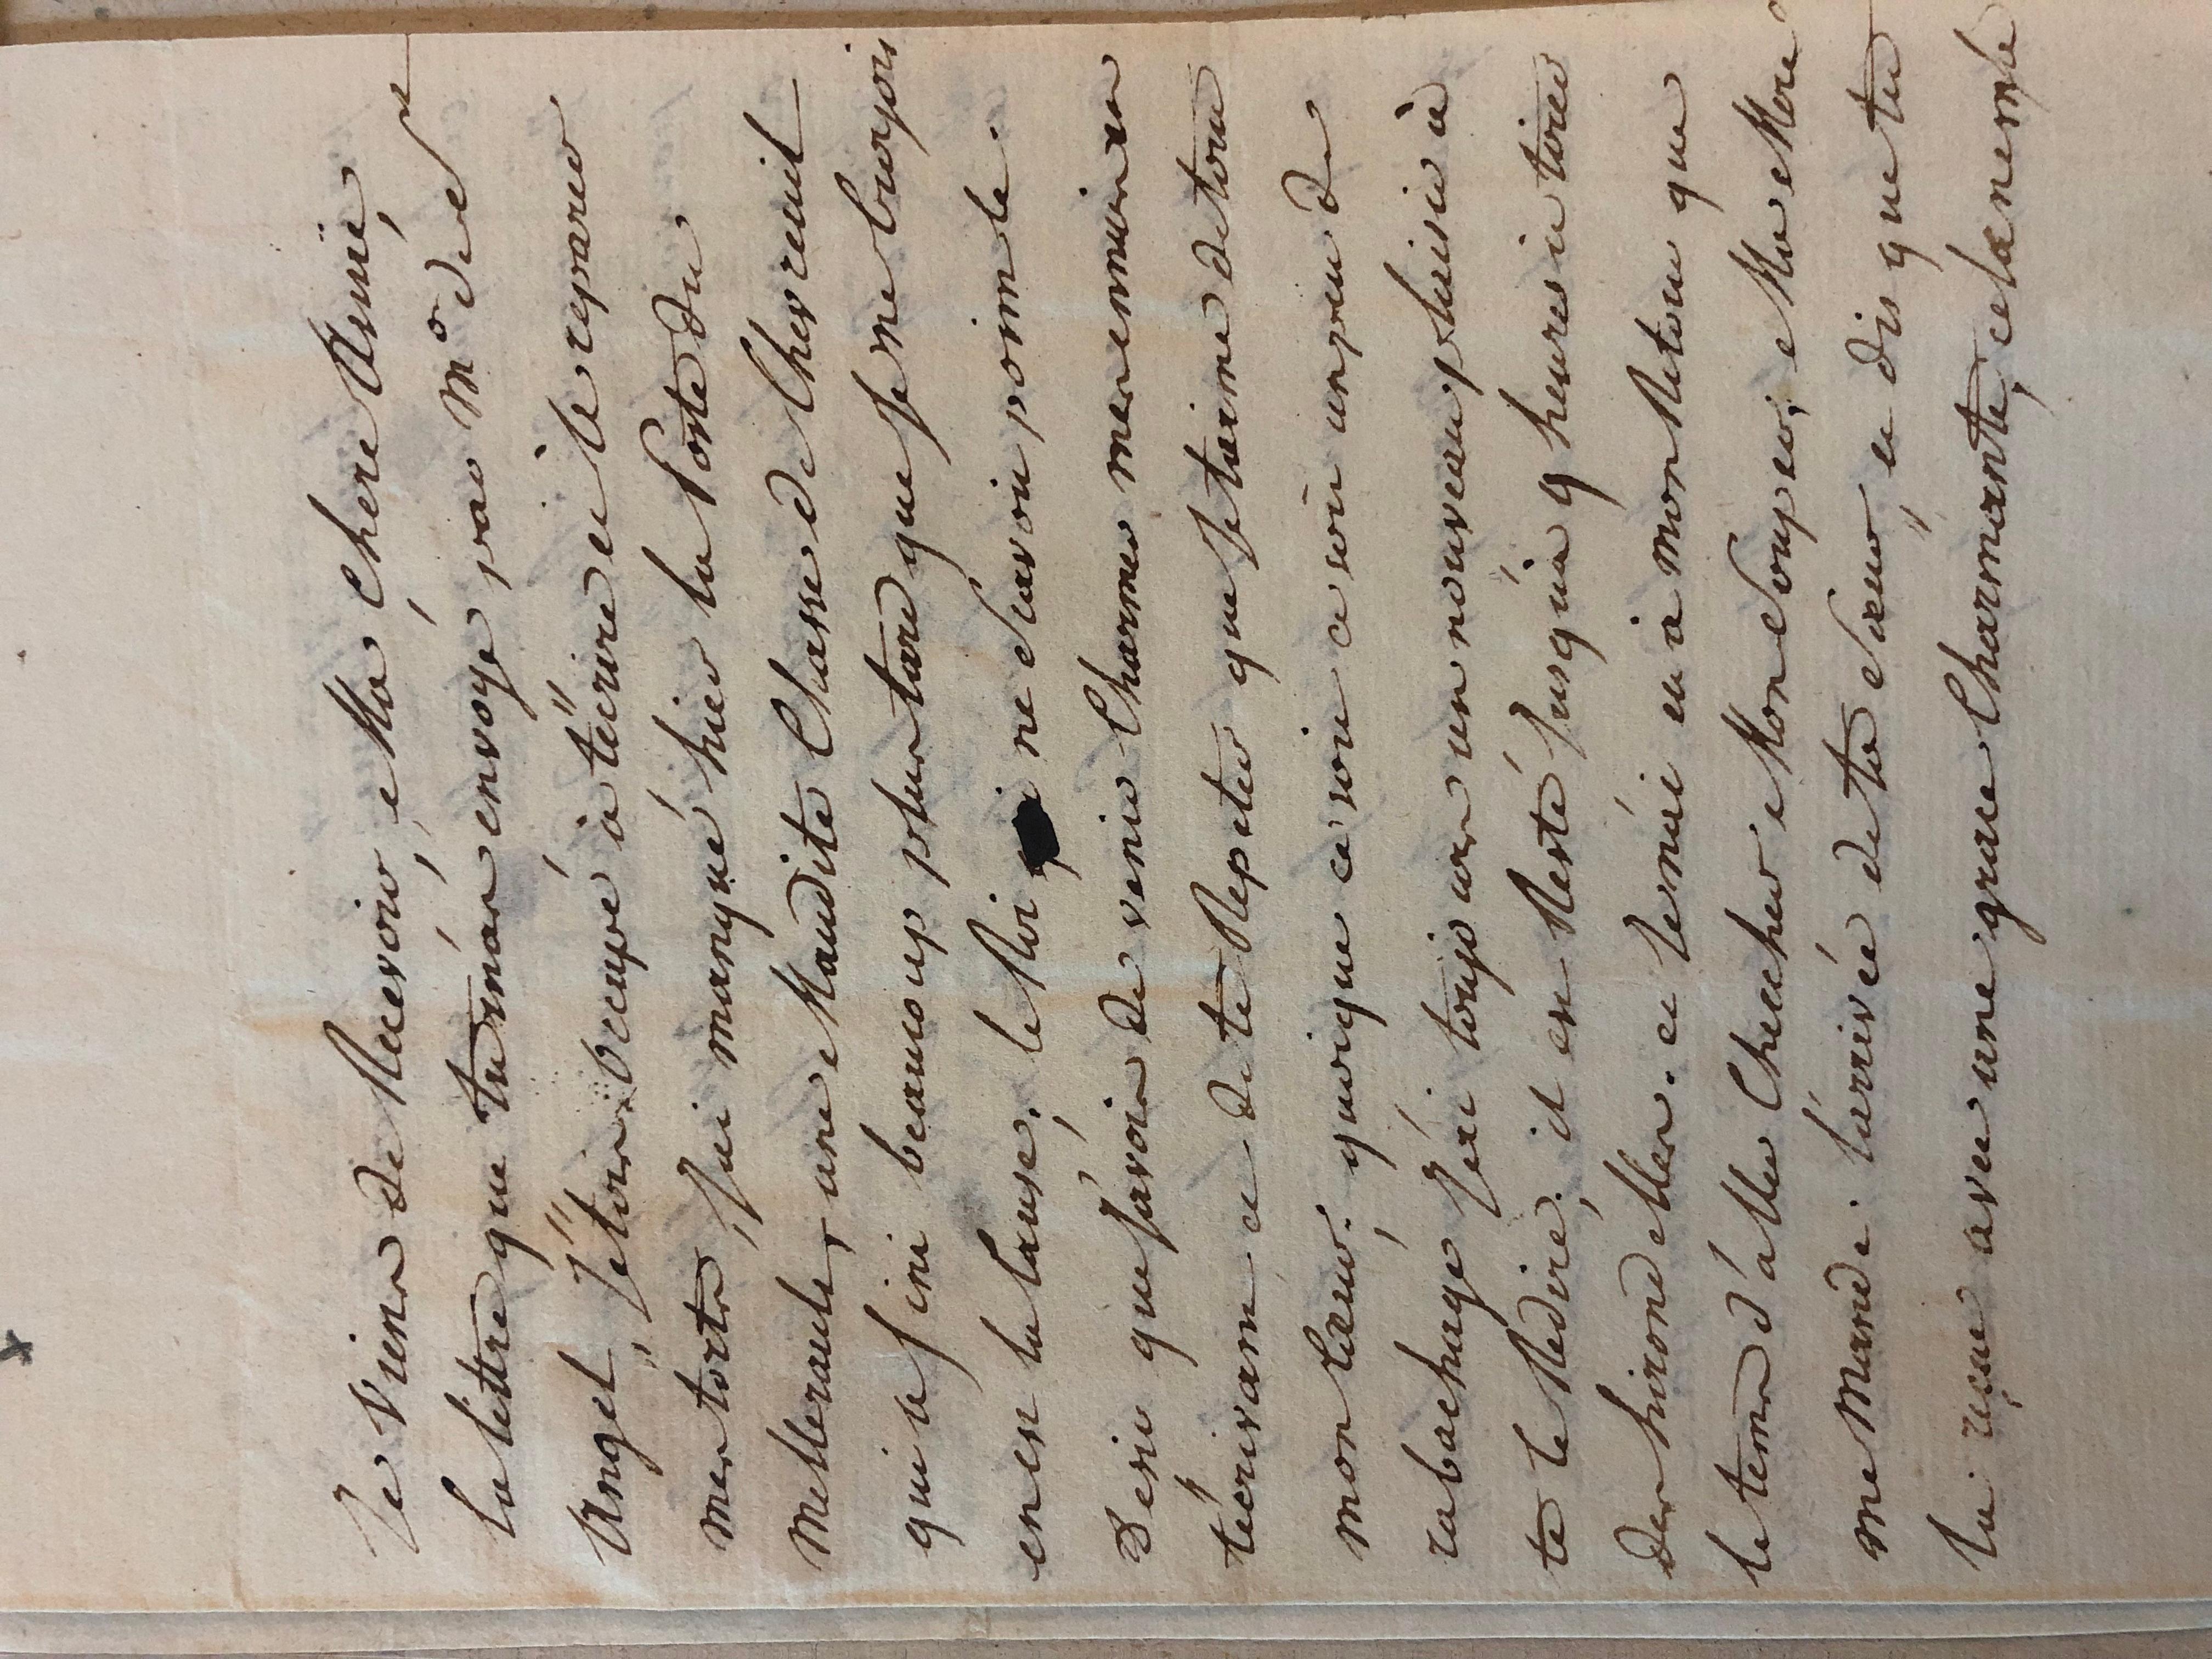 Je viens de Recevoir, Ma Chere Amie,
la lettre que tu m'as envoyé par Mde de St
Angel, J'etois Occupé à t'écrire et te reparer
mes torts, J'ai manqué hier la Poste du
Mellerault, une Maudite Chasse de Chevreuil
qui a fini beaucoup plus tard que Je ne Croyois
en est la Cause, le Roi ne scavoit point le
Desir que J'avois de venir Charmer mes ennuis en
t'écrivant et de te Repeter que Je t'aime de tout
mon Cœur. quoique ce soit un peu de
rabachage J'ai toujours un nouveau plaisir à
te le Redire, il est Resté Jusqu'a 9 heures a tirer
des hirondelles. et Je n'ai eu à mon Retour que
le tems d'aller Chercher Mon Souper, Ma Mere
me Mande l'arrivée de ta Sœur, et dis que tu
l'a reçue avec une grace Charmante, cela ne m'e